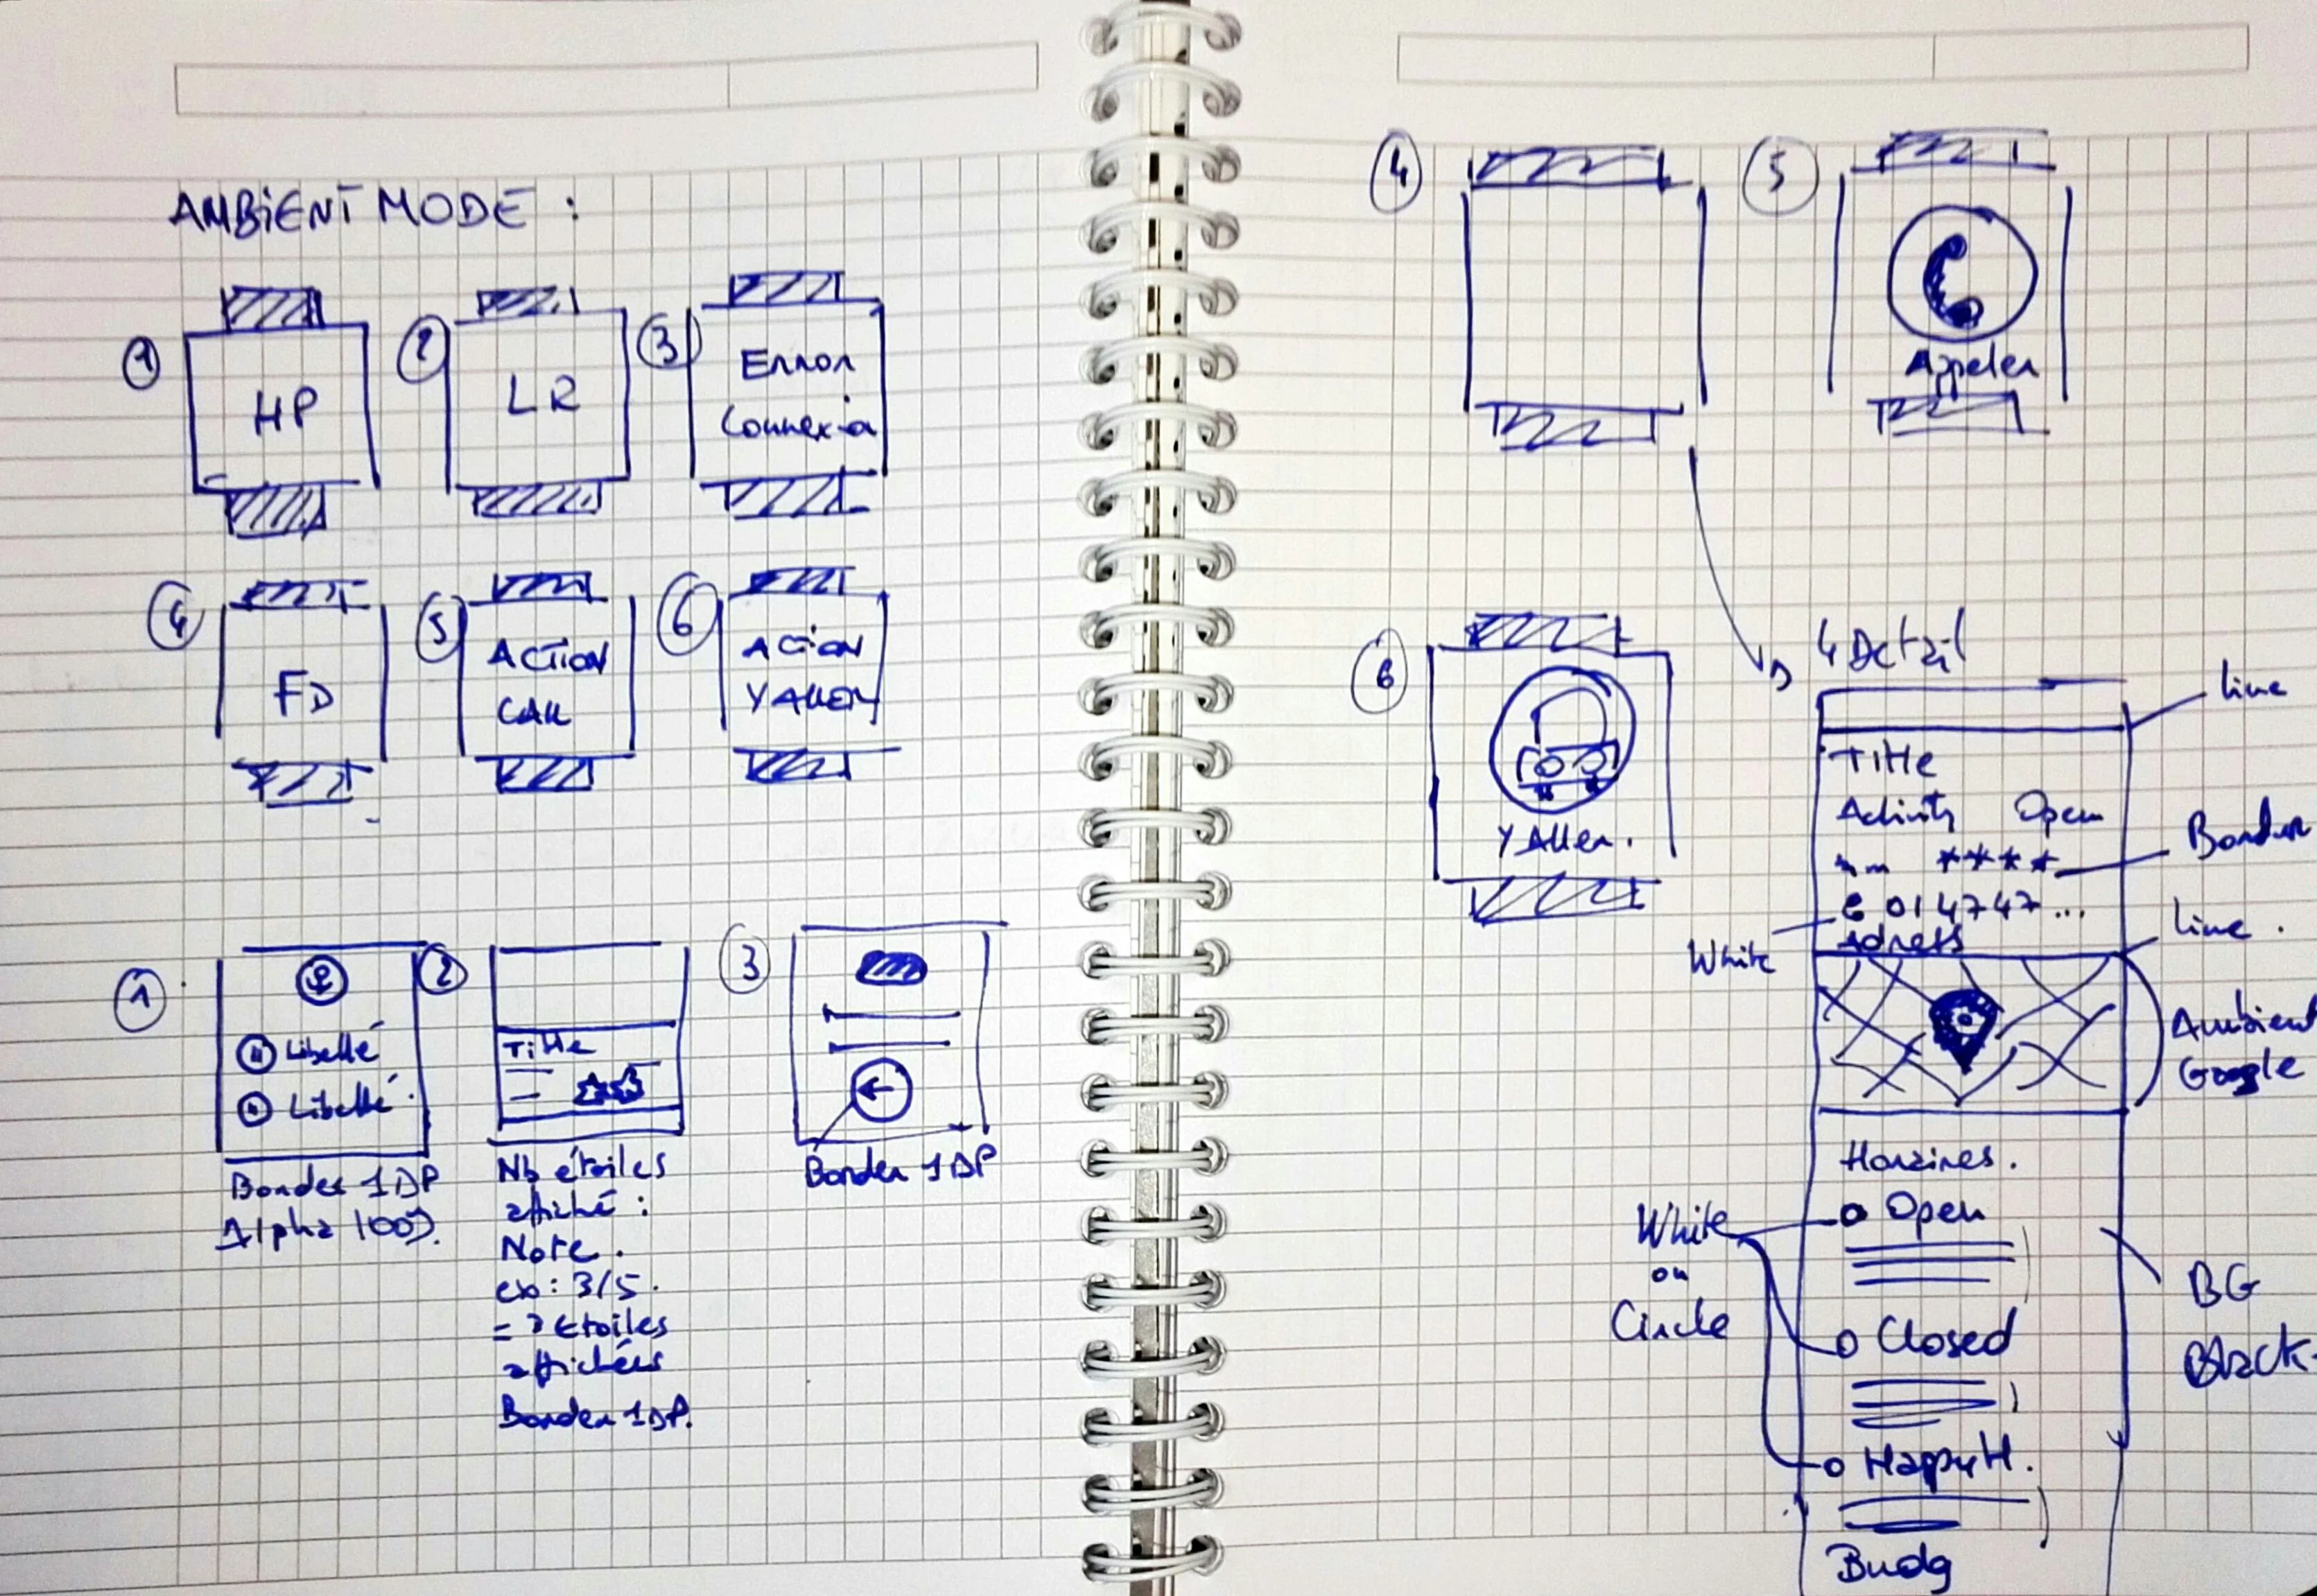 AMBIENT MODE :
1
HP
2
LR
3
Error
Connexio
4
FD
5
ACTION
CALL
6
ACTION
YALLER
1
Libellé
Libellé
Border 1DP
Alpha 100%
2
Title
Nb étoiles
affiché :
Note.
ex : 3/5.
= 3 Etoiles
affichées
Border 1DP.
3
Border 1DP
4
5
Appeler
6
Y Aller.
4 Detail
Line
Title
Activity Open
**** Border
White 014747...
Adress
Line.
Ambient
Google
Horaires.
White
ou
Circle
Open
BG
Black
Closed
HappyH.
Budg